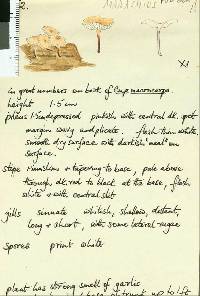 2.
X1
in great numbers on bark of Cup. macrocarpa.
height 1-5 cm
pileus 1-5cm depressed pinkish with central dk. spot
margin wavy and plicate. flesh thin white
smooth dry surface with darkish 'meal' on
surface.
stipe 1-4cm tapering to base, pale above
through, dk. red to black at the base, flesh
white + with central slit
gills sinuate whitish, shallow, distant,
long + short, with some lateral rugae
Spores print white
plant has strong smell of garlic